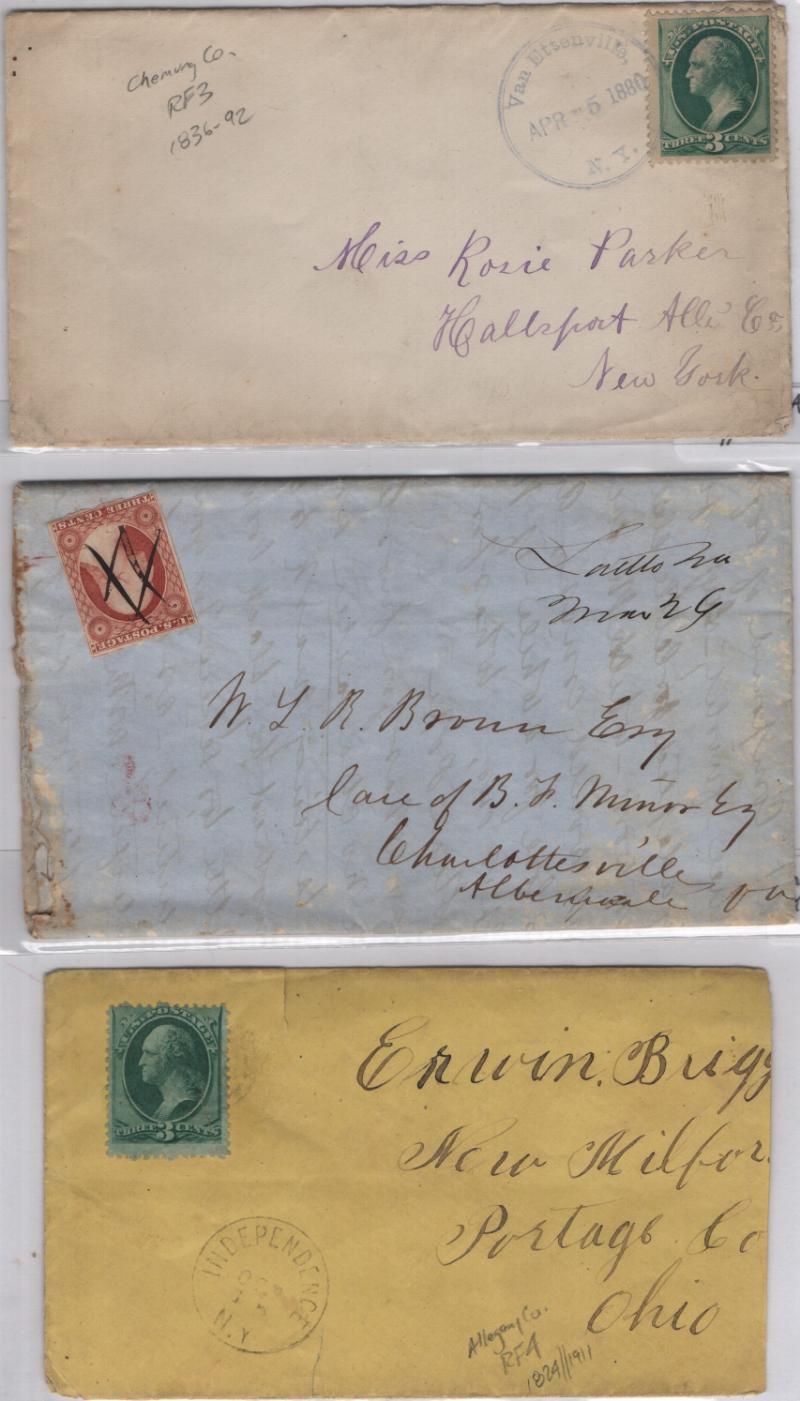 Chemung Co.
RF3
1836-92
Van Ettenville,
APR - 5 1880
N. Y.
U.S. POSTAGE
THREE 3 CENTS
Miss Rosie Parker
Hallsport Alle' Co.
New York.
U.S. POSTAGE
THREE CENTS
Mar 29
W. L. R. Brown Esq
Care of B. F. Minor Esq
Charlottesville
Albemarle Va
U.S. POSTAGE
THREE 3 CENTS
Erwin. Brigg
New Milfor
Portage Co
Ohio
INDEPENDENCE
N.Y.
Allegany Co.
RF4
1824//1911